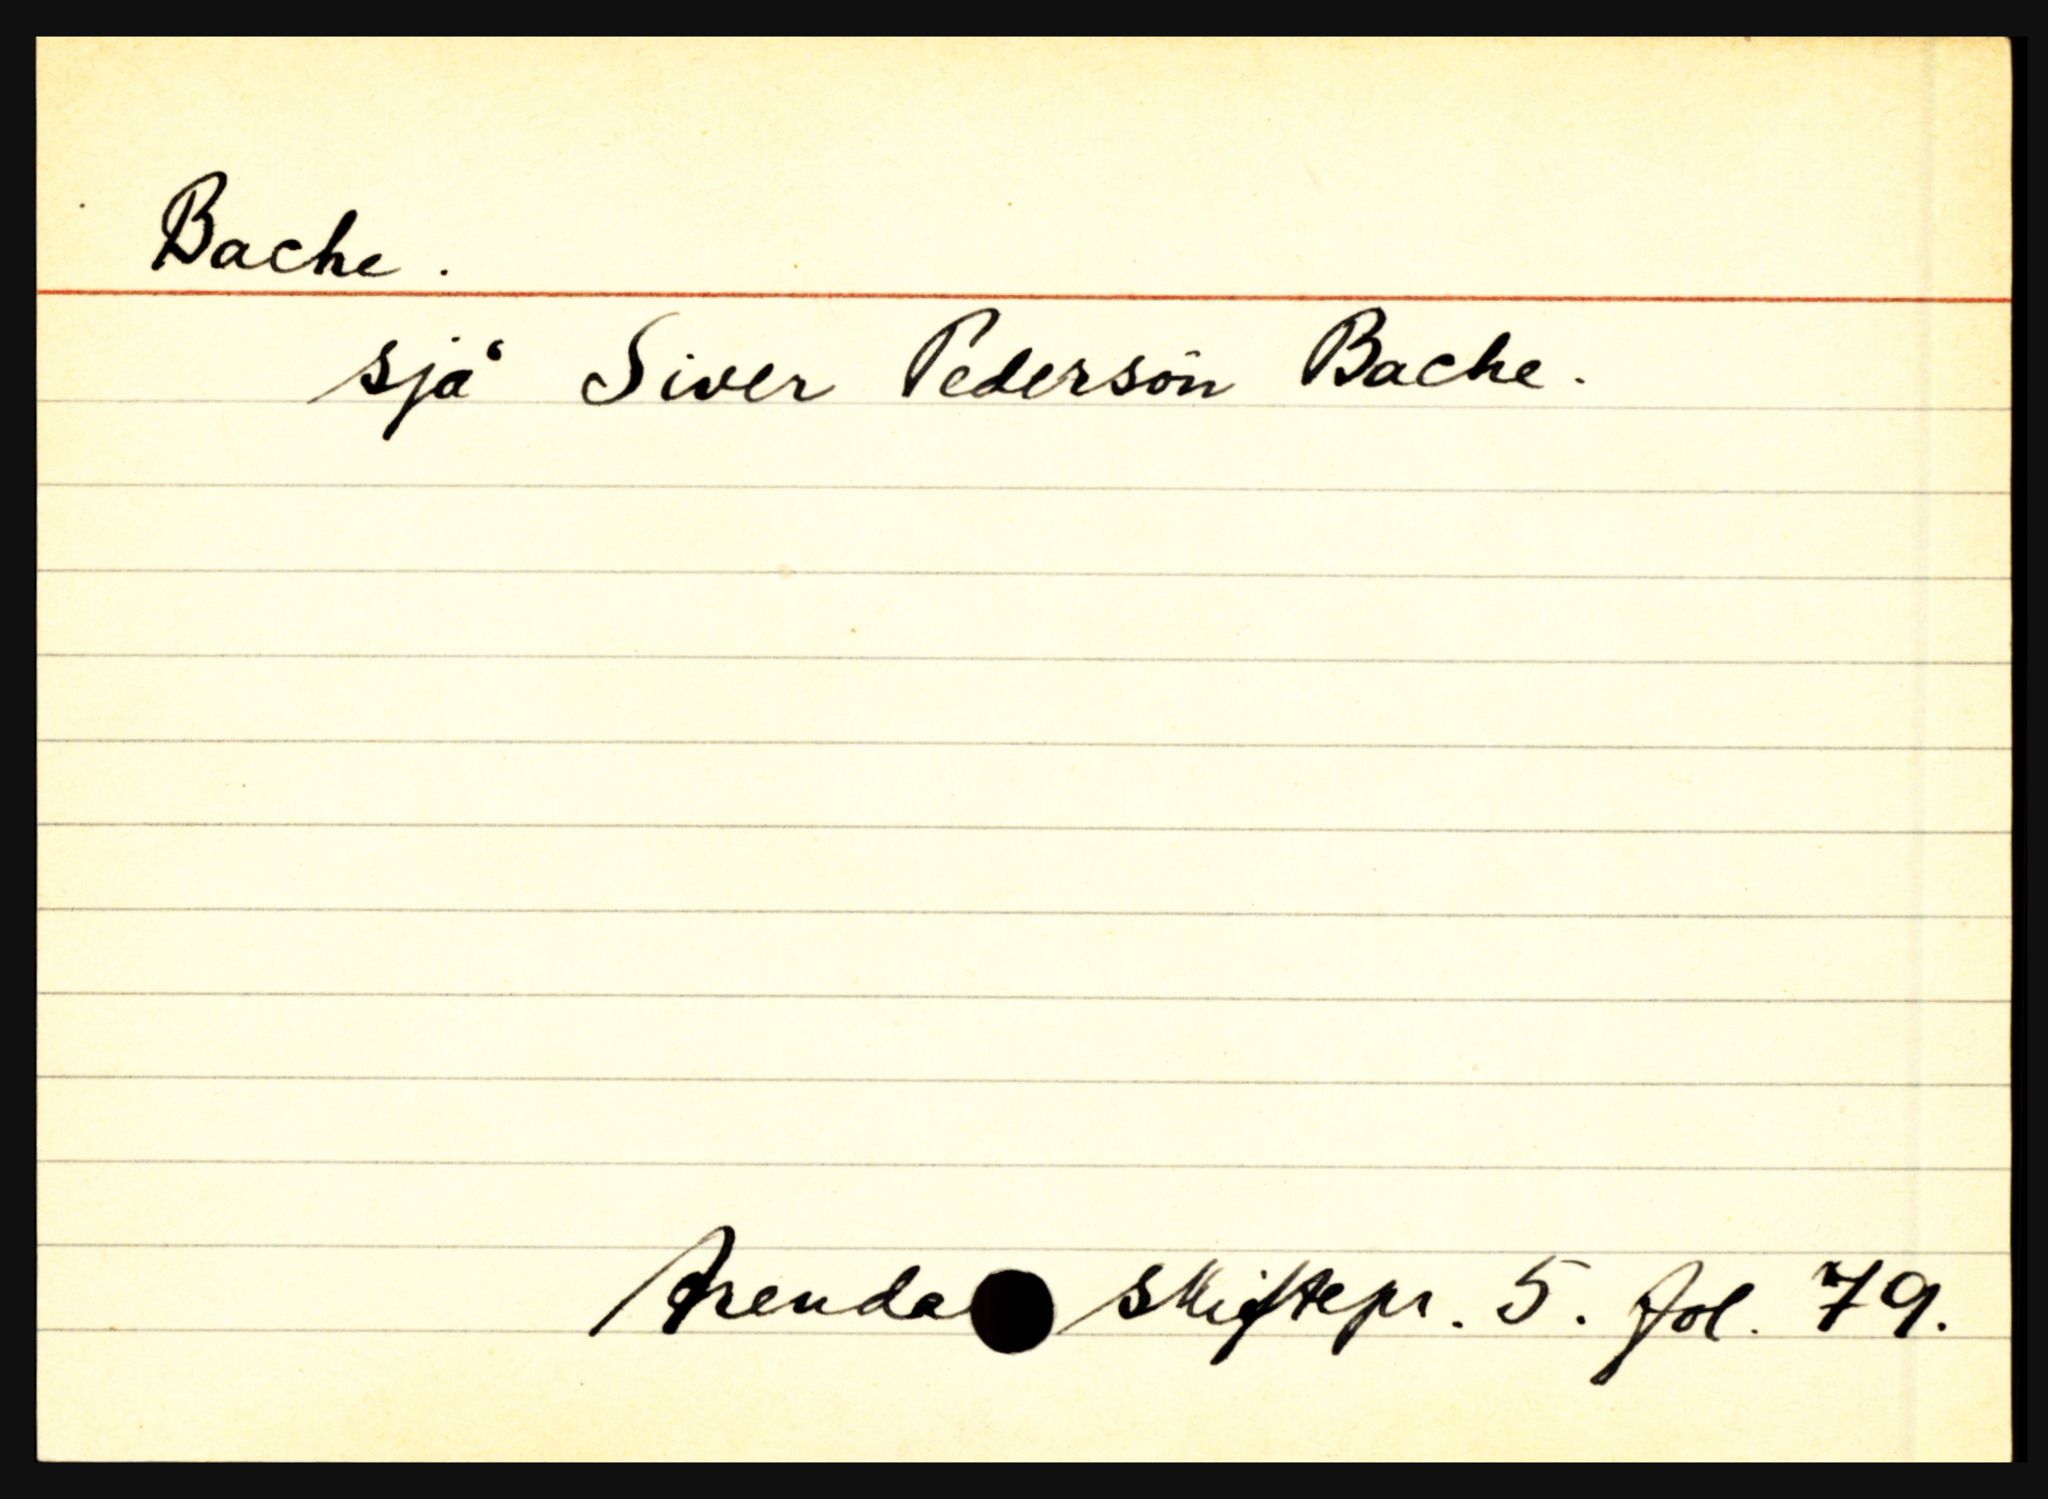 Bache.
sjå Siver Pedersön Bache.
Arenda skiftepr. 5. fol. 79.